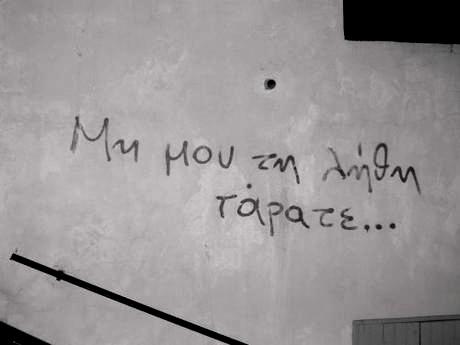 Μη μου τη λήθη
τάρατε...